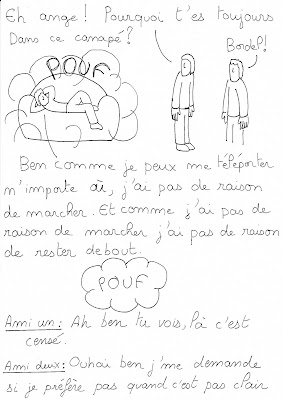 Eh ange! Pourquoi t'es toujours
Dans ce canapé?
Bordel!
POUF
Ben comme je peux me téléporter
n'importe où, j'ai pas de raison
de marcher. Et comme j'ai pas de
raison de marcher j'ai pas de raison
de rester debout.
POUF
Ami un: Ah ben tu vois, là c'est
censé.
Ami deux: Ouhai ben j'me demande
si je préfère pas quand c'est pas clair